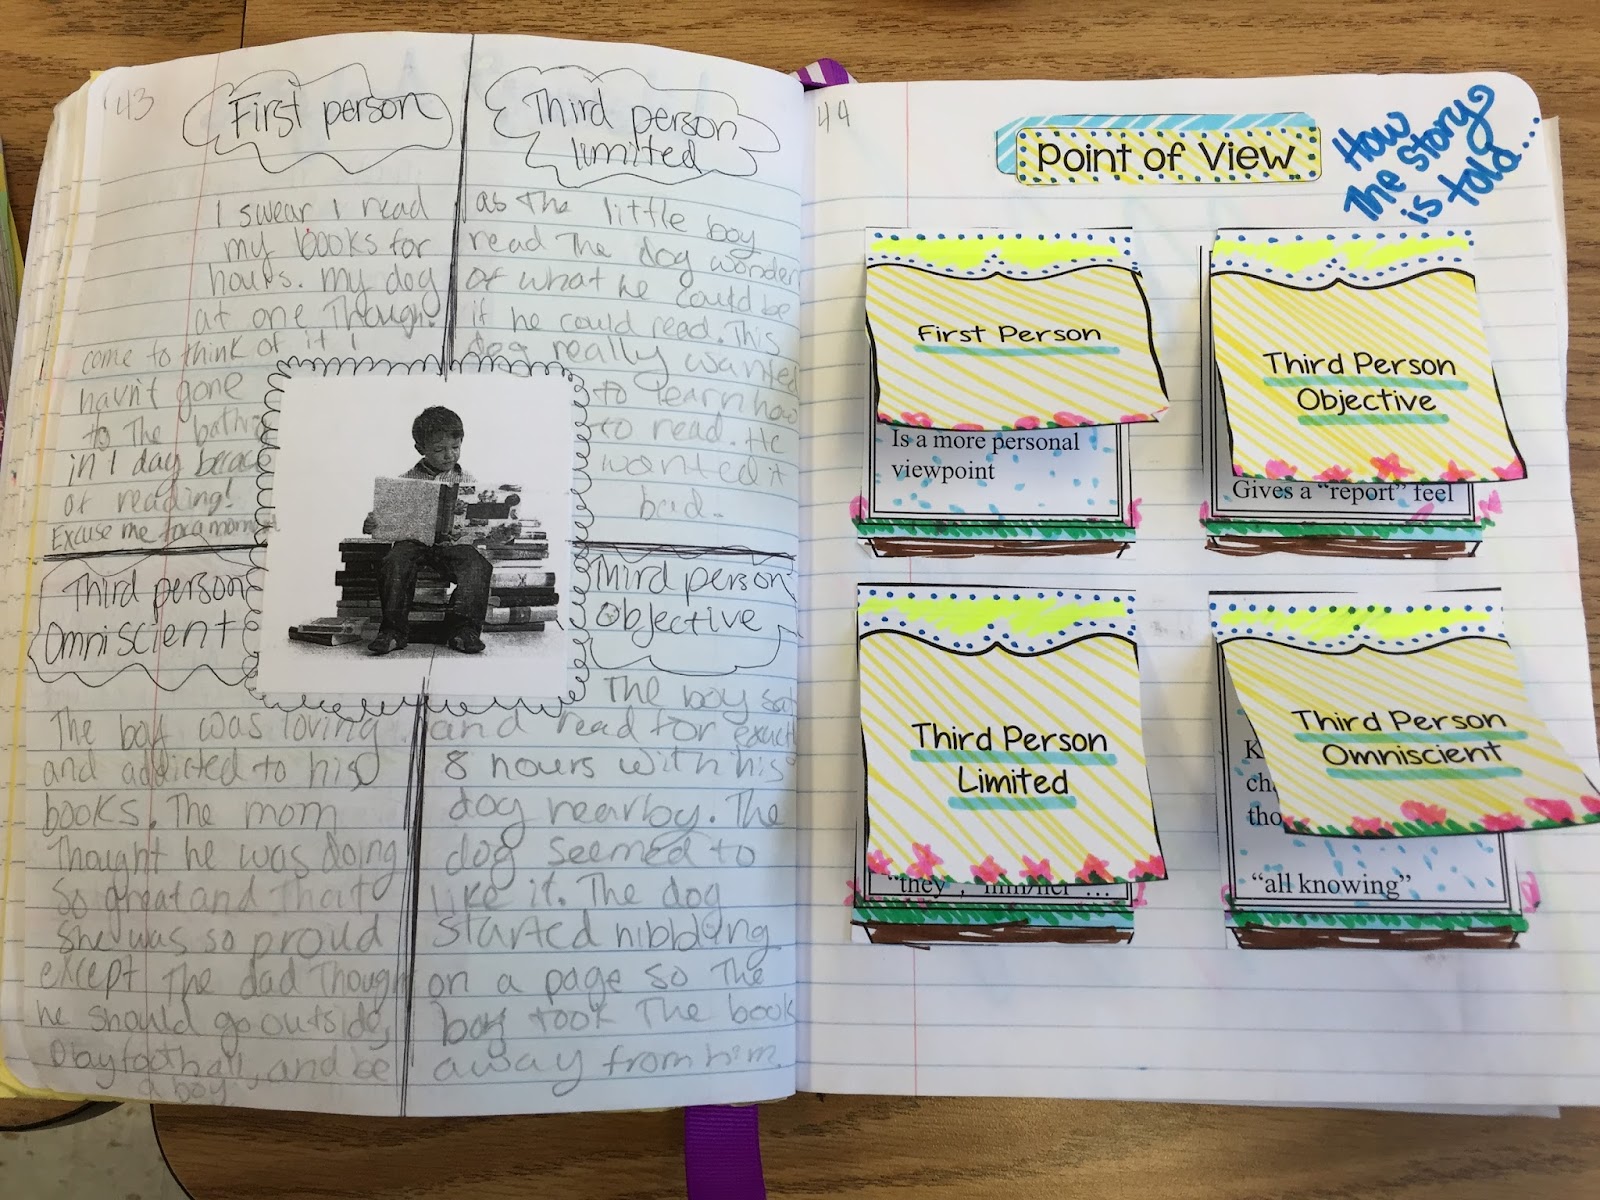 43
First person
I swear I read
my books for
hours. my dog
at one Though!
come to think of it I
havn't gone
to The bathr
in 1 day becaus
of reading!
Excuse me for a moment
Third person
limited
as The little boy
read The dog wonder
of what he could be
if he could read. This
dog really wanted
to learn how
to read. He
wanted it
bad.
Third person
Omniscient
The boy was loving
and addicted to his
books. The mom
Thought he was doing
so great and That
she was so proud
except The dad Though
he should go outside,
play football, and be
a boy
Third person
Objective
The boy sat
and read for exactl
8 hours with his
dog nearby. The
dog seemed to
like it. The dog
started nibbling
on a page so The
boy took The book
away from him.
44
Point of View
How
The story
is told...
First Person
Is a more personal
viewpoint
Third Person
Objective
Gives a "report" feel
Third Person
Limited
"they",
Third Person
Omniscient
K
cha
tho
"all knowing"